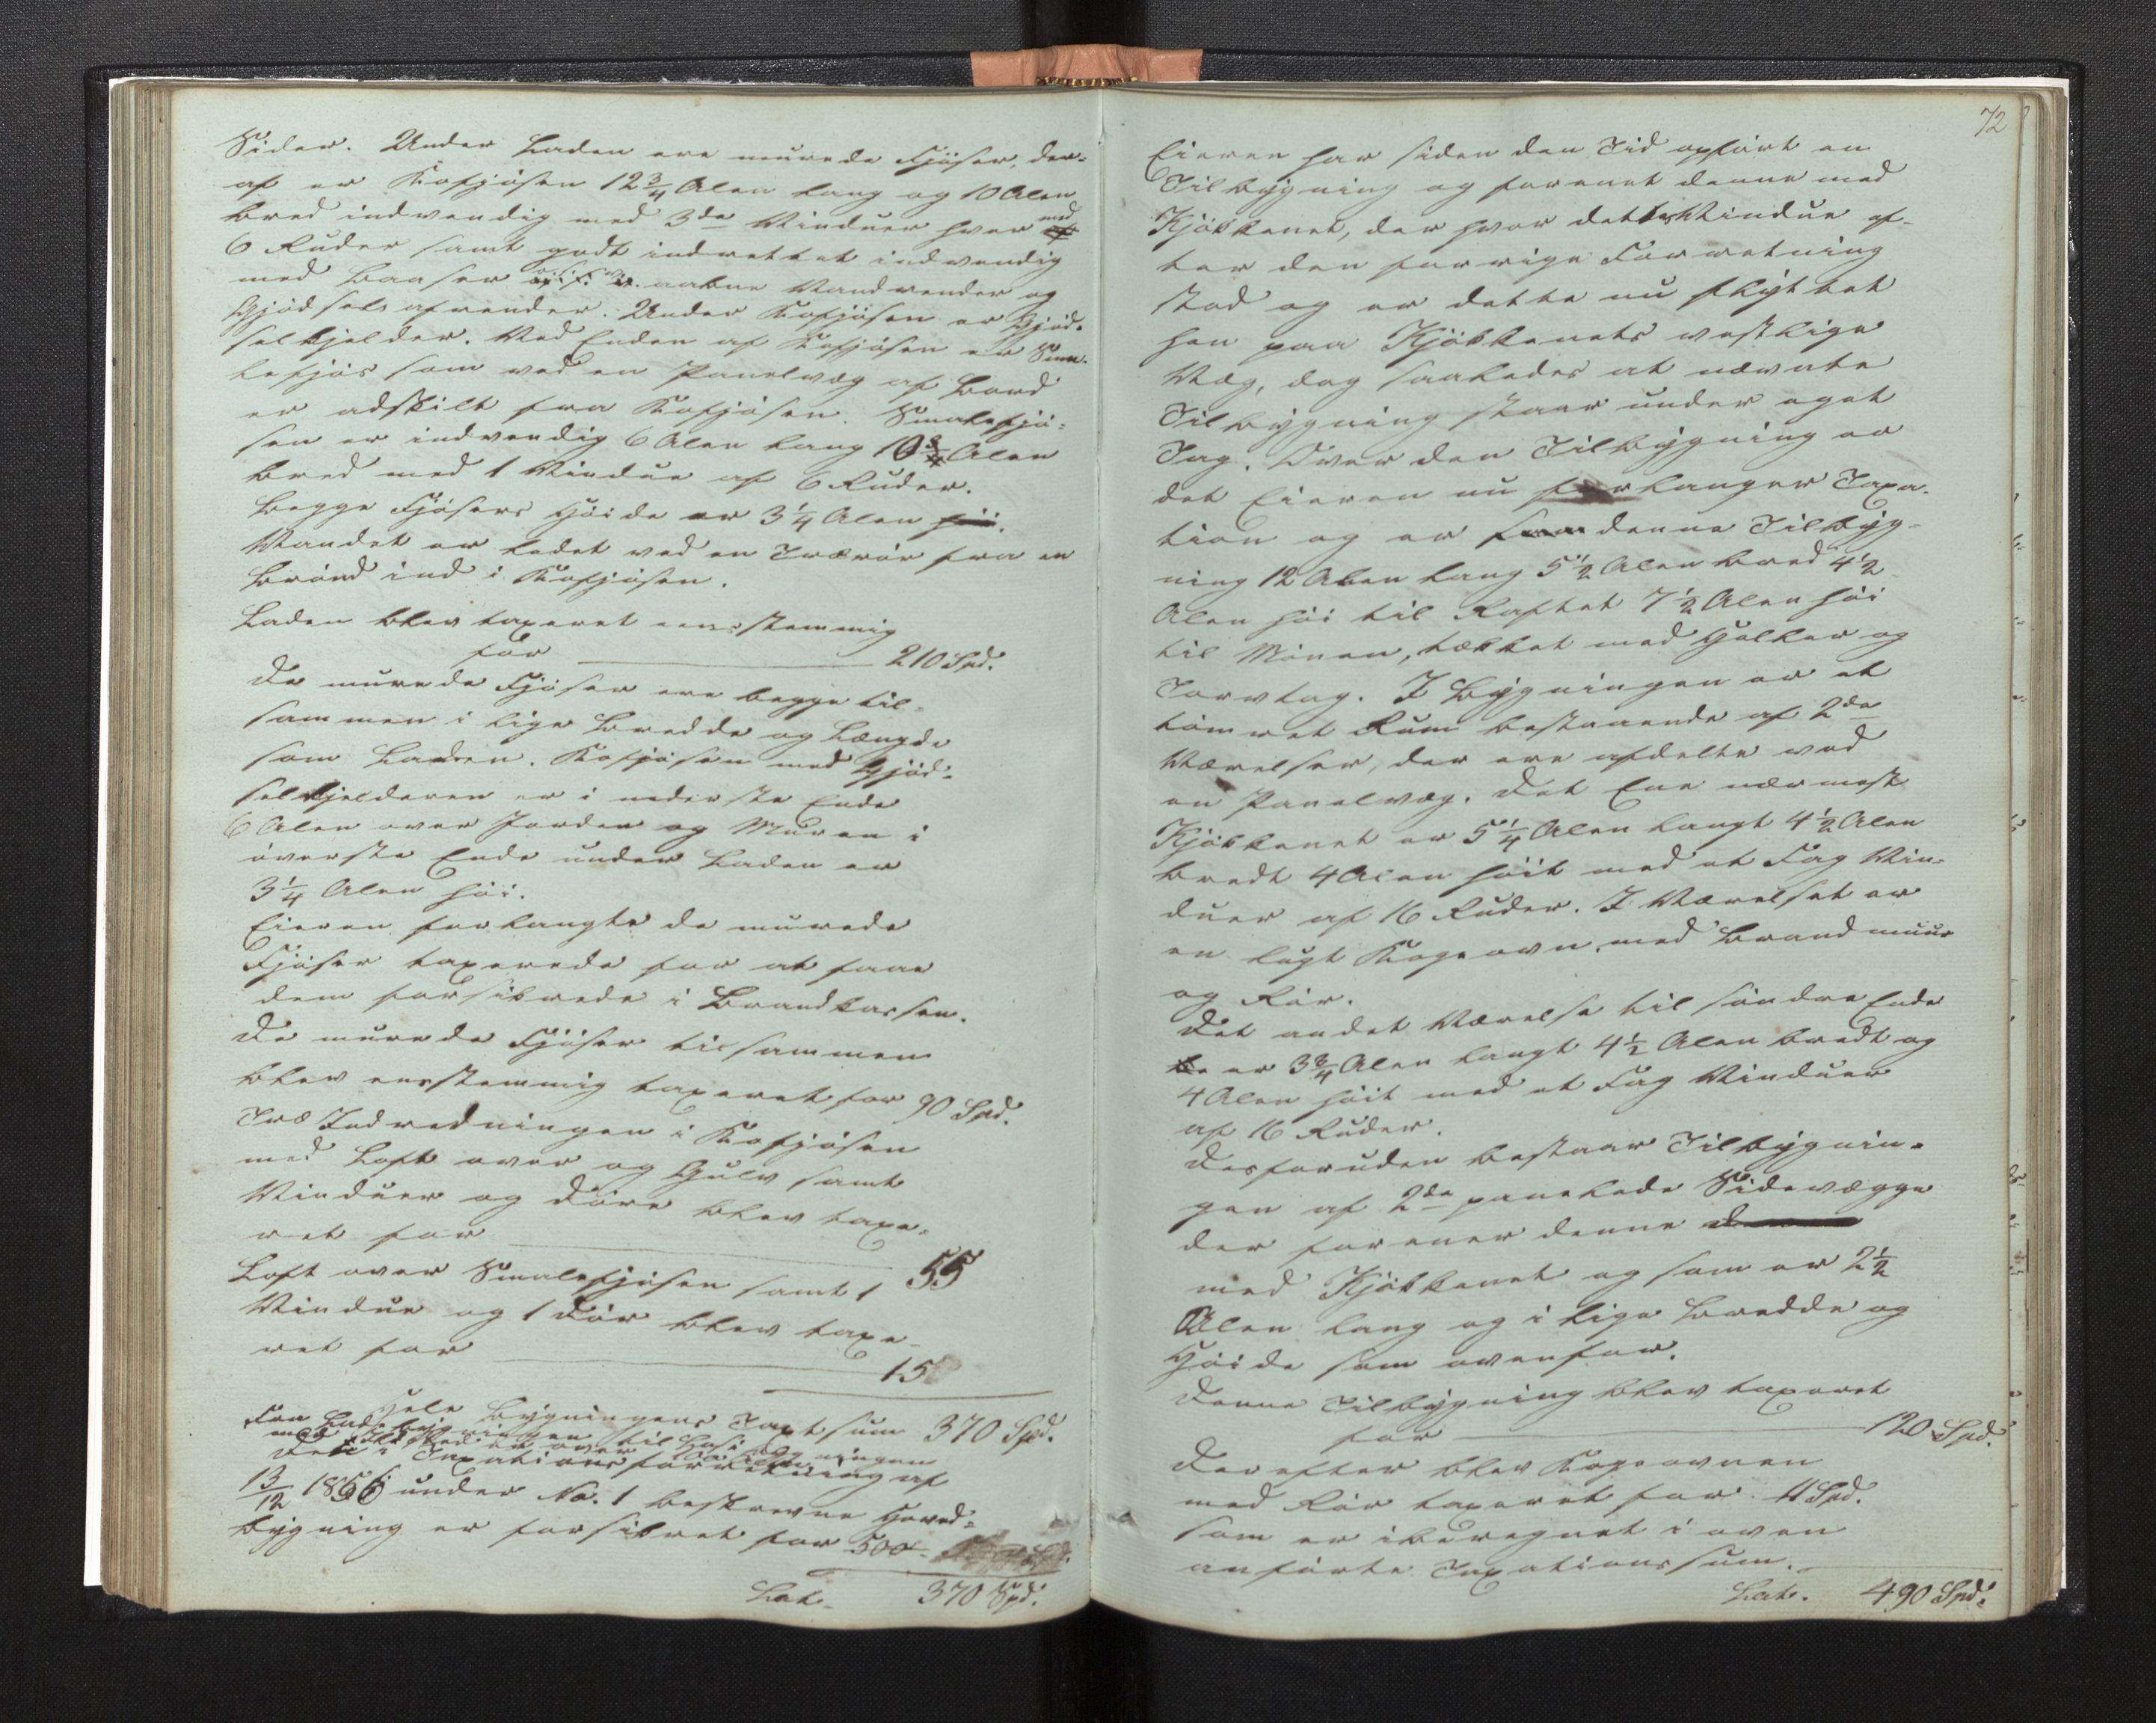 Sider. Under Laden ere murede Fjøser, der-
af er Kofjøsen 12 3/4 Alen lang og 10 Alen
bred indvendig med 3de Vinduer hver med
6 Ruder samt godt indrettet indvendig
med Baaser aabne Vandrender og
Gjødsels afrender. Under Kofjøsen er Gjød-
selkjelder. Ved Enden af Kofjøsen er Sma-
lefjøs som ved en Panelvæg af Bord
er adskilt fra Kofjøsen. Smalefjø-
sen er indvendig 6 Alen lang 10 Alen
bred med 1 Vindue af 6 Ruder.
Begge Fjøsers Høide er 3 1/4 Alen høi.
Vandet er ledet ved en Trærør fra en
Brønd ind i Kofjøsen.
Laden blev taxeret eenstemmig
for 210 Spd.
De murede Fjøser ere begge til-
sammen i lige Bredde og Længde
som Laden. Kofjøsen med Gjød-
selkjelderen er i nederste Ende
6 Alen over Jorden og Muren i
øverste Ende under Laden er
3 1/4 Alen høi.
Eieren forlangte de murede
Fjøser taxerede for at faae
dem forsikrede i Brandkassen.
De murede Fjøser tilsammen
blev eenstemmig taxeret for 90 Spd.
Træ Indredningen i Kofjøsen
med Loft over og Gulv samt
Vinduer og Døre blev taxe-
ret for 55
Loft over Smalefjøsen samt 1
Vindue og 1 Dør blev taxe-
ret for 15
Hele Bygningens Taxtsum 370 Spd.
Fra Ladebygningen til
Den i Taxationsforretning af
13/12 1856 under No. 1 beskrevne Hoved-
bygning er forsikret for 500
Lat. 370 Spd.
72
Eieren har siden den Tid opført en
Tilbygning og forenet denne med
Kjøkkenet, der hvor dettes Vindue ef-
ter den forrige Forretning
stod og er dette nu flyttet
hen paa Kjøkkenets vestlige
Væg, dog saaledes at nævnte
Tilbygning staar under eget
Tag. Over den Tilbygning er
det Eieren nu forlanger Taxa-
tion og er denne Tilbyg-
ning 12 Alen lang 5 1/2 Alen bred 4 1/2
Alen høi til Raftet 7 1/2 Alen høi
til Mønen, tækket med Heller og
Torvtag. I Bygningen er et
tømret Rum bestaaende af 2de
Værelser, der ere afdelte ved
en Panelvæg. Det Ene nærmest
Kjøkkenet er 5 1/4 Alen langt 4 1/2 Alen
bredt 4 Alen høit med et Fag Vin-
duer af 16 Ruder. I Værelset er
en Kogeovn med Brandmuur
og Rør.
Det andet Værelse til søndre Ende
er 3 3/4 Alen langt 4 1/2 Alen bredt og
4 Alen høit med et Fag Vinduer
af 16 Ruder.
Desforuden bestaar Tilbygnin-
gen af 2de panelede Sidevægge
der forener denne
med Kjøkkenet og som er 2 1/2
Alen lang og i lige Bredde og
Høide som ovenfor.
Denne Tilbygning blev taxeret
for 120 Spd.
Derefter blev Kogeovnen
med Rør taxeret for 11 Spd.
som er iberegnet i oven
anførte Taxationssum.
Lat. 490 Spd.